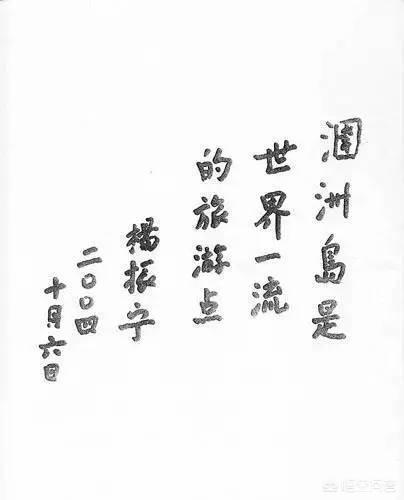 涠洲島是
世界一流
的旅游点
楊振宁
二〇〇四
十月六日
悟空问答